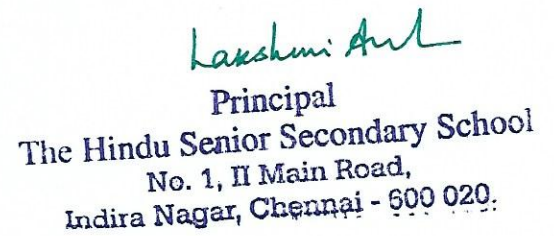 Lakshmi
Principal
The Hindu Senior Secondary School
No. 1, II Main Road,
Indira Nagar, Chennai - 600 020.